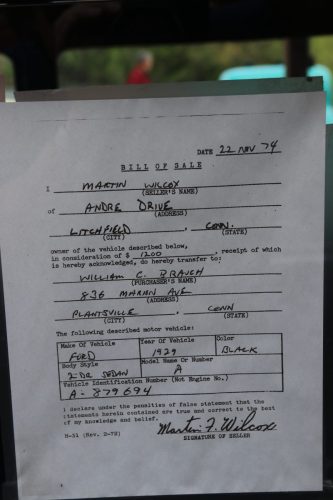 DATE 22 NOV 74
BILL OF SALE
I MARTIN WILCOX
(SELLER'S NAME)
of ANDRE DRIVE
(ADDRESS)
LITCHFIELD, CONN.
(CITY) (STATE)
owner of the vehicle described below,
in consideration of $ 1200, receipt of which
is hereby acknowledged, do hereby transfer to:
WILLIAM C. BRAUCH
(PURCHASER'S NAME)
836 MARION AVE
(ADDRESS)
PLANTSVILLE, CONN
(CITY) (STATE)
The following described motor vehicle:
Make Of Vehicle Year Of Vehicle Color
FORD 1929 BLACK
Body Style Model Name Or Number
2 DR SEDAN A
Vehicle Identification Number (Not Engine No.)
A-879694
I declare under the penalties of false statement that the
statements herein contained are true and correct to the best
of my knowledge and belief.
Martin F. Wilcox
H-31 (Rev. 2-72) SIGNATURE OF SELLER